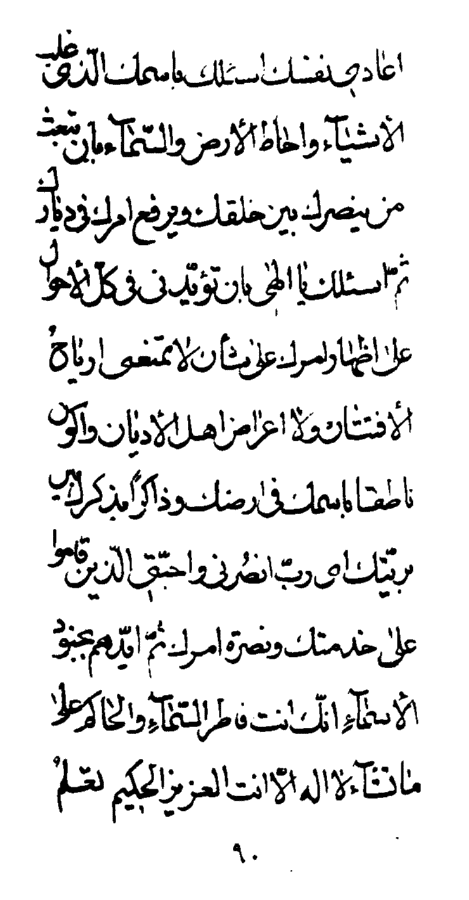 اعادي نفسك اسئلك باسمك الذی غلب
الأشيآء واحاط الأرض والسّمآء بأن تبعث
من ينصرك بين خلقك ويرفع امرك فی ديارك
ثمّ اسئلك يا الهی بان تؤيّدنی فی كلّ الأحوال
علی اظهار امرك علی شأن لا تمنعنی ارياحُ
الأفتتان ولا اعراض اهل الأديان واكون
ناطقا باسمك فی ارضك وذاكراً بذكرك بين
بريّتك ای ربّ انصُرنی واحبّتی الّذين قاموا
علی خدمتك ونصرة امرك ثُمّ ايّدهم بجنود
الأسمآءِ انّك انت فاطر السّمآءِ والحاكم علی
ما تشآء لا اله الّا انت العزيز الحكيم تعلمُ
٩٠